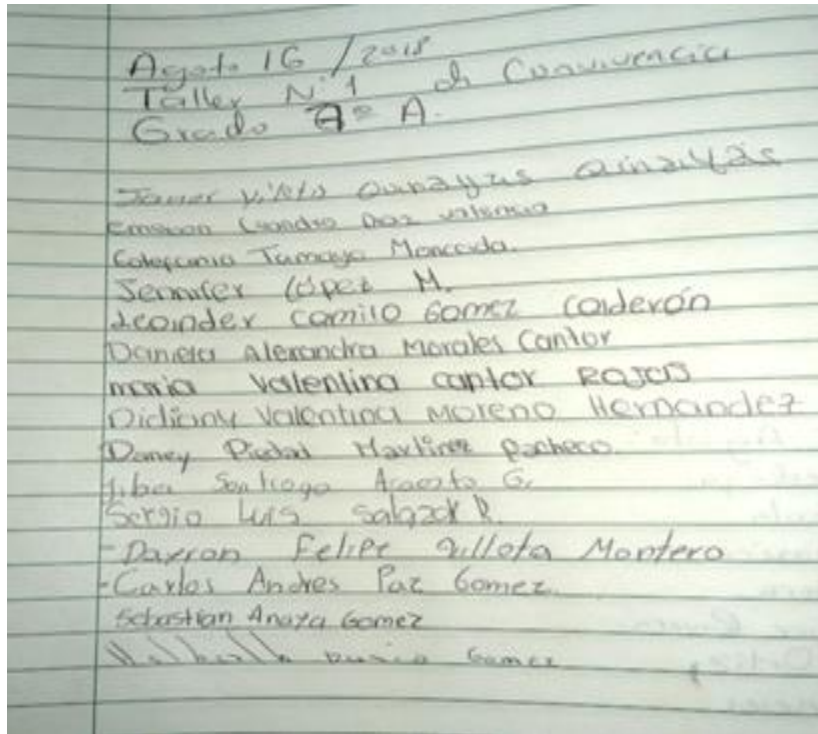 Agosto 16 / 2018
Taller N° 1 de Convivencia
Grado 7° A.
Emerson Leandro Diaz Valencia
Tamayo Moncada.
Jennifer López M.
Leoinder camilo Gomez Calderón
Daniela Alexandra Morales Cantor
maria Valentina cantor Rojas
Didiany Valentina Moreno Hernandez
Daney Piedad Martinez Pacheco.
Santiago Acosta G.
Sergio Luis Salgado R.
- Dayron Felipe Villota Montero
- Carlos Andres Paz Gomez.
Sebastian Anaya Gomez
Gomez